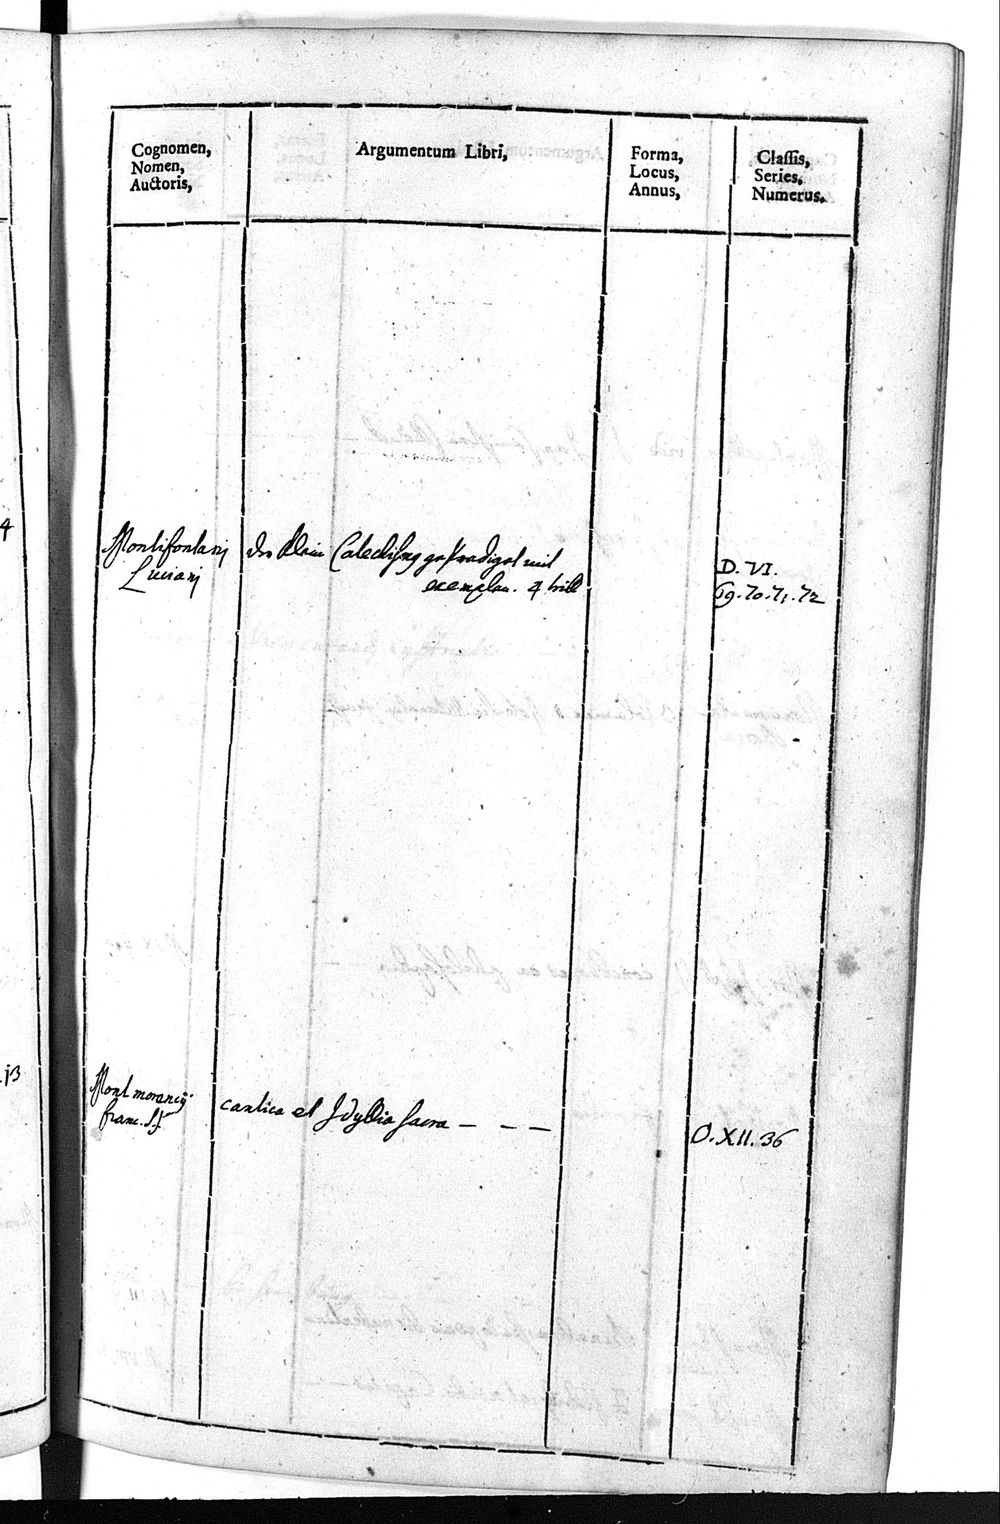 Cognomen,
Nomen,
Auctoris,
Argumentum Libri,
Forma,
Locus,
Annus,
Classis,
Series,
Numerus.
4
Montifontanj
Lucianj
Catechismg geprediget mit
exemplen. 4 theil
D. VI.
69. 70. 71. 72
Montmorancij
franc. S.J
cantica et Idyllia sacra - - -
O. XII. 36